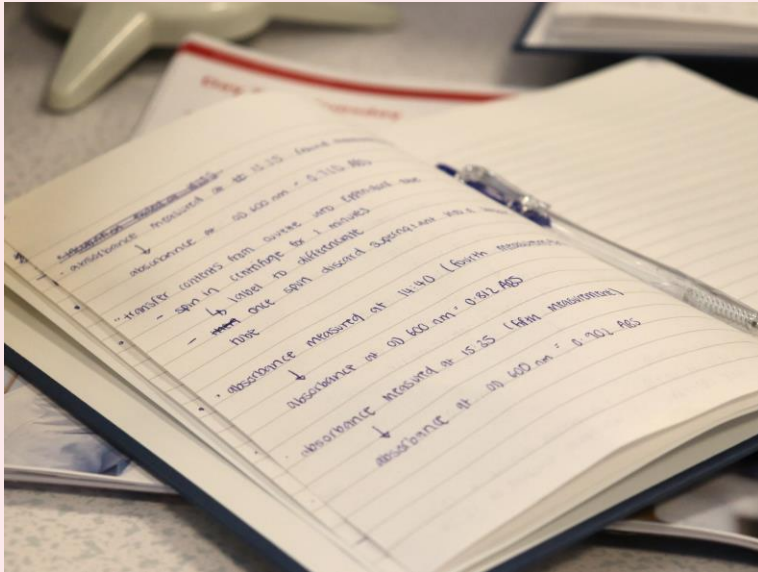 absorbance measured at 13:25
absorbance at OD 600 nm = 0.715 ABS
transfer contents from cuvette into eppendorf tube
- spin in centrifuge for 2 minutes
↳ label to differentiate
- once spun discard supernatant into
tube
· absorbance measured at 14:40 (fourth measurement
↓
absorbance at OD 600 nm = 0.812 ABS
absorbance measured at 15:25 (fifth measurement)
↓
absorbance at OD 600 nm = 0.902 ABS